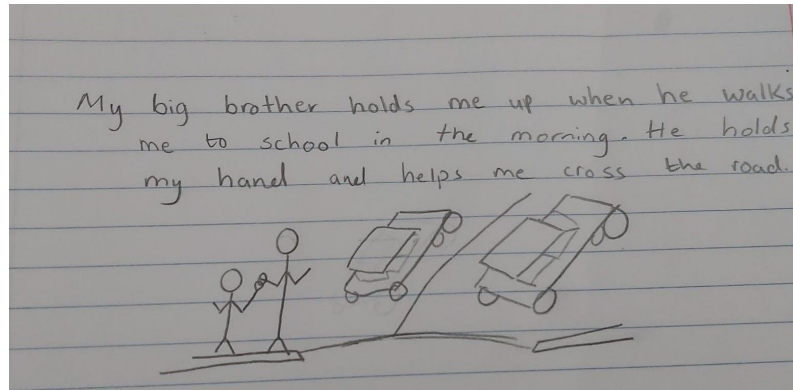 My big brother holds me up when he walks
me to school in the morning. He holds
my hand and helps me cross the road.